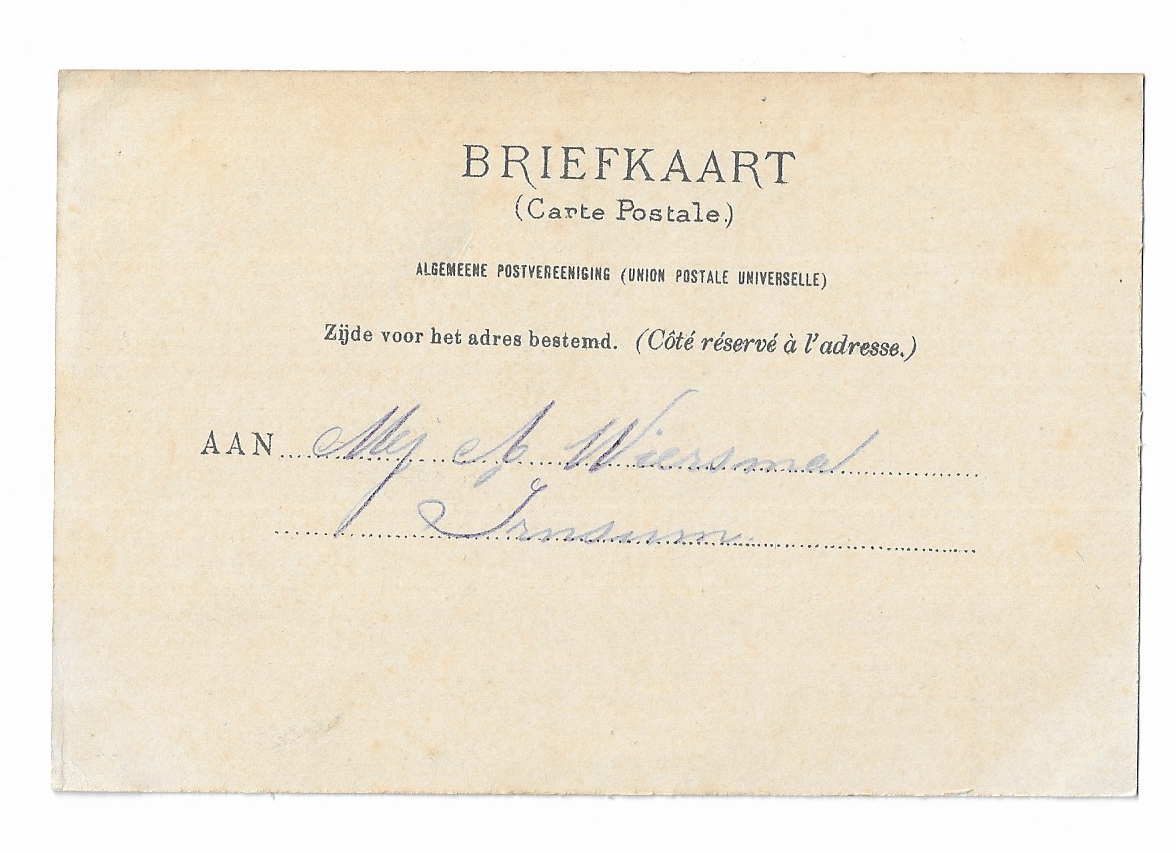 BRIEFKAART
(Carte Postale.)
ALGEMEENE POSTVEREENIGING (UNION POSTALE UNIVERSELLE)
Zijde voor het adres bestemd. (Côté réservé à l'adresse.)
AAN Mej A Wiersma
Irnsum